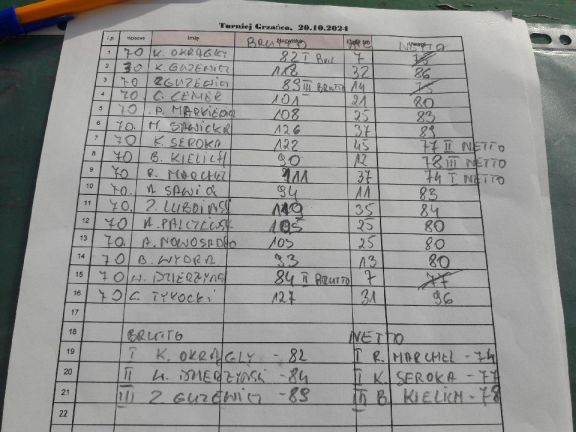 Turniej Grzańca. 20.10.2024
l.p. Imię BRUTTO NETTO
1 70 K. OKRĄGŁY 82 I Brut 7 75
2 70 K. GUZEWICZ 118 32 86
3 70 Z GUZEWICZ 89 III BRUTTO 14 75
4 70 C. CEMER 101 21 80
5 70 P. MARKIEWICZ 108 25 83
6 70. M. SAWICKA 126 37 89
7 70 K. SEROKA 122 45 77 II NETTO
8 70 B. KIELICH 90 12 78 III NETTO
9 70 R. MARCHEL 111 37 74 I NETTO
10 70. SAWICKI 94 11 83
11 70. Z. 119 35 84
12 70 A. 105 25 80
13 70. A. NOWOSAD 105 25 80
14 70 B. WYDRA 93 13 80
15 70 W. DZIERZYŃSKI 84 II BRUTTO 7 77
16 70 G. TYKOCKI 127 31 96
17
18 BRUTTO NETTO
19 I K. OKRĄGŁY - 82 I R. MARCHEL - 74
20 II W. DZIERZYŃSKI - 84 II K. SEROKA - 77
21 III Z. GUZEWICZ - 89 III B KIELICH - 78
22